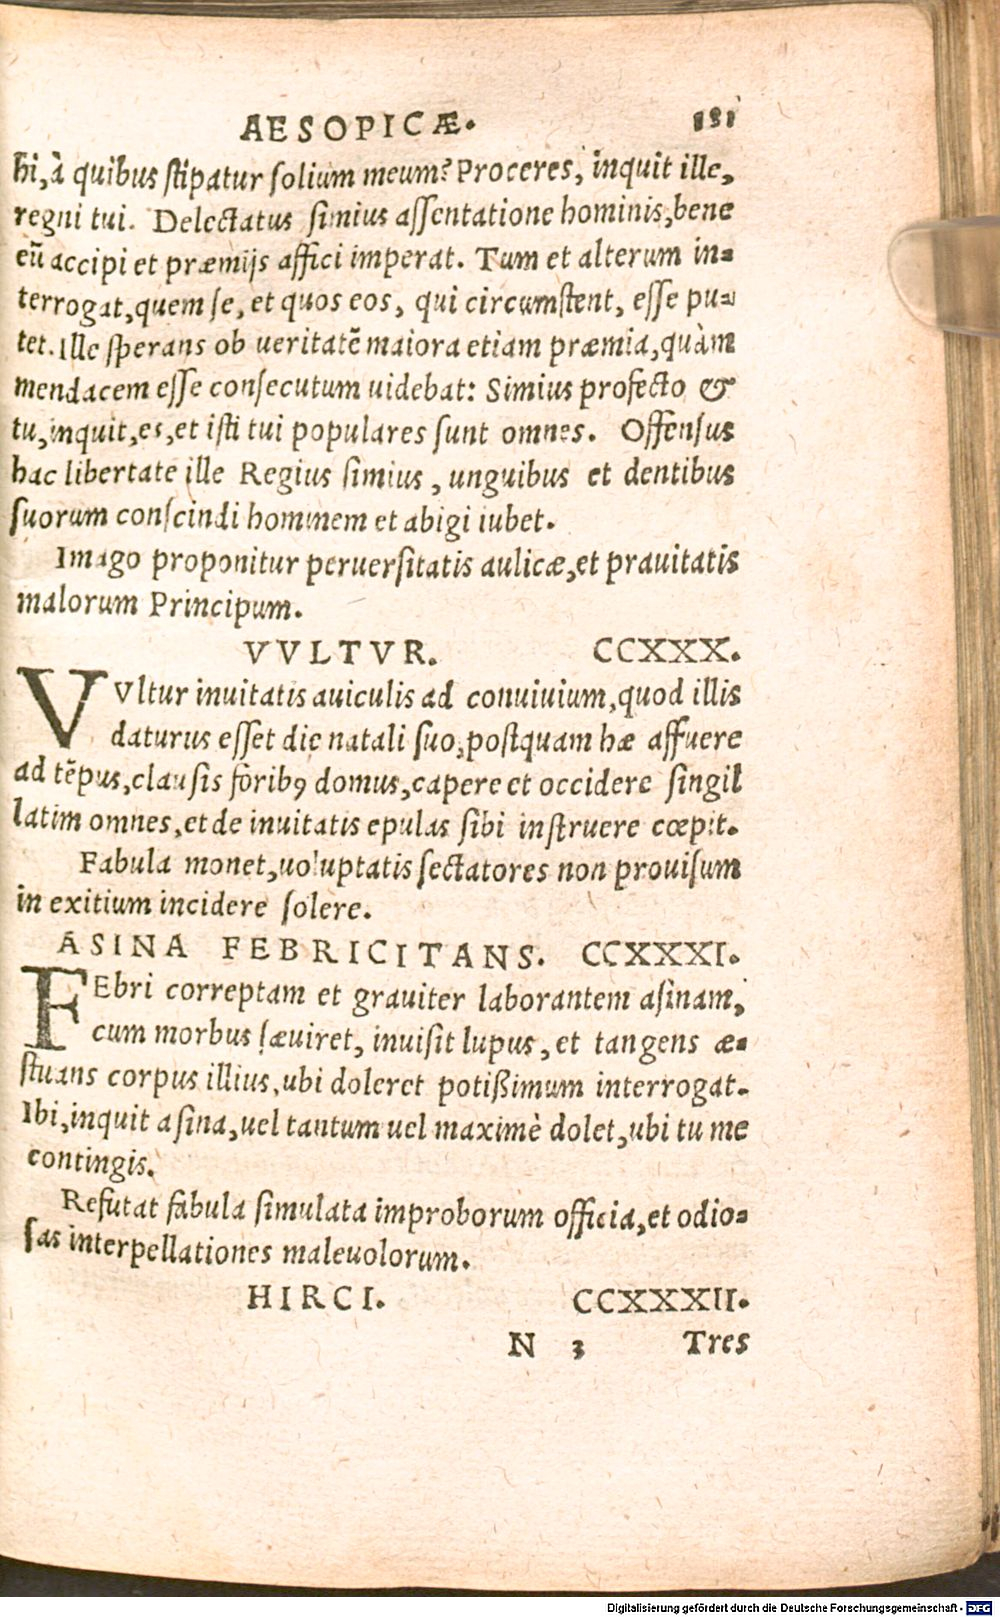 AESOPICÆ. 191
hi, à quibus stipatur solium meum? Proceres, inquit ille,
regni tui. Delectatus simius assentatione hominis, bene
eū accipi et præmijs affici imperat. Tum et alterum in-
terrogat, quem se, et quos eos, qui circumstent, esse pu-
tet. Ille sperans ob ueritatē maiora etiam præmia, quàm
mendacem esse consecutum uidebat: Simius profecto &
tu, inquit, es, et isti tui populares sunt omnes. Offensus
hac libertate ille Regius simius, unguibus et dentibus
suorum conscindi hominem et abigi iubet.
Imago proponitur peruersitatis aulicæ, et prauitatis
malorum Principum.
VVLTVR. CCXXX.
VVltur inuitatis auiculis ad conuiuium, quod illis
daturus esset die natali suo, postquam hæ affuere
ad tēpus, clausis foribꝰ domus, capere et occidere singil
latim omnes, et de inuitatis epulas sibi instruere cœpit.
Fabula monet, uoluptatis sectatores non prouisum
in exitium incidere solere.
ASINA FEBRICITANS. CCXXXI.
FEbri correptam et grauiter laborantem asinam,
cum morbus sæuiret, inuisit lupus, et tangens æ-
stuans corpus illius, ubi doleret potißimum interrogat.
Ibi, inquit asina, uel tantum uel maximè dolet, ubi tu me
contingis.
Refutat fabula simulata improborum officia, et odio-
sas interpellationes maleuolorum.
HIRCI. CCXXXII.
N 3 Tres
Digitalisierung gefördert durch die Deutsche Forschungsgemeinschaft - DFG